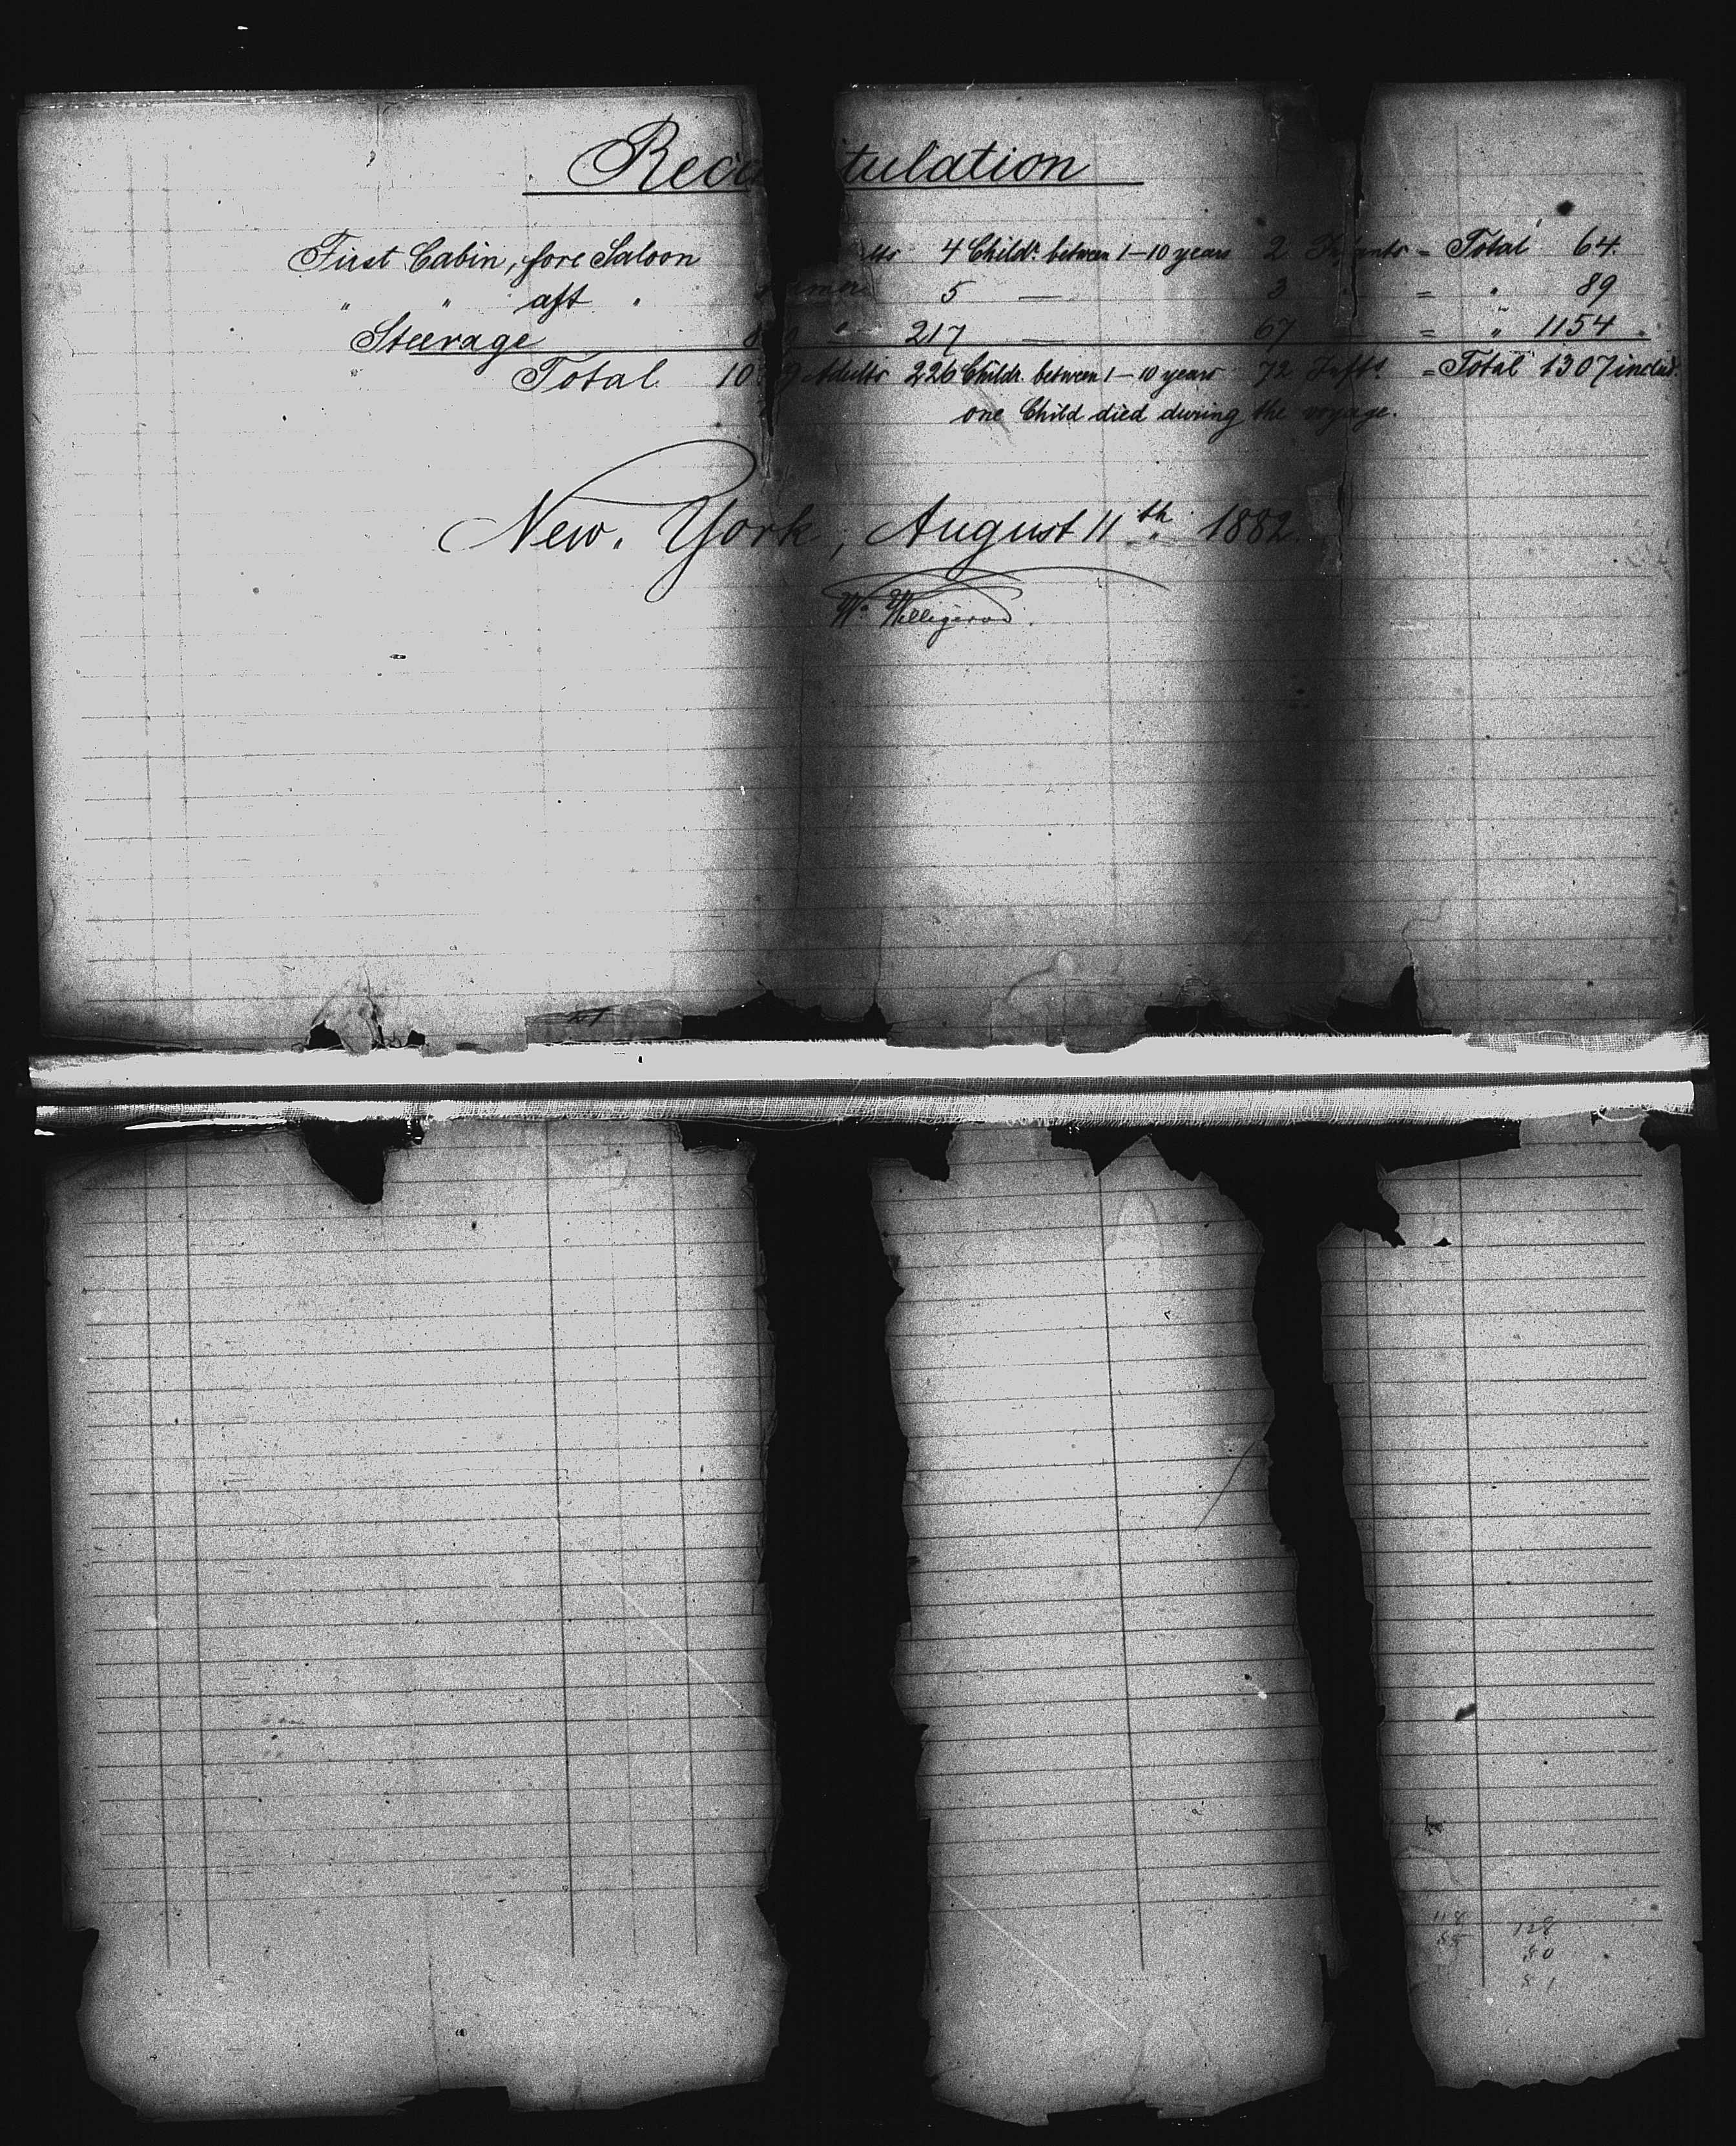 Reca tulation
First Cabin, fore Saloon lts 4 Childr. between 1-10 years 2 Infants = Total 64.
" " aft " 5 — 3 " = " 89
Steerage 8 9 " 217 — 67 = " 1154 "
Total 10 9 Adults 226 Childr. between 1-10 years 72 Infts. = Total 1307 includ.
one Child died during the voyage.
New York, August 11th. 1882.
W. Willigerod.
118 128
85 80
81